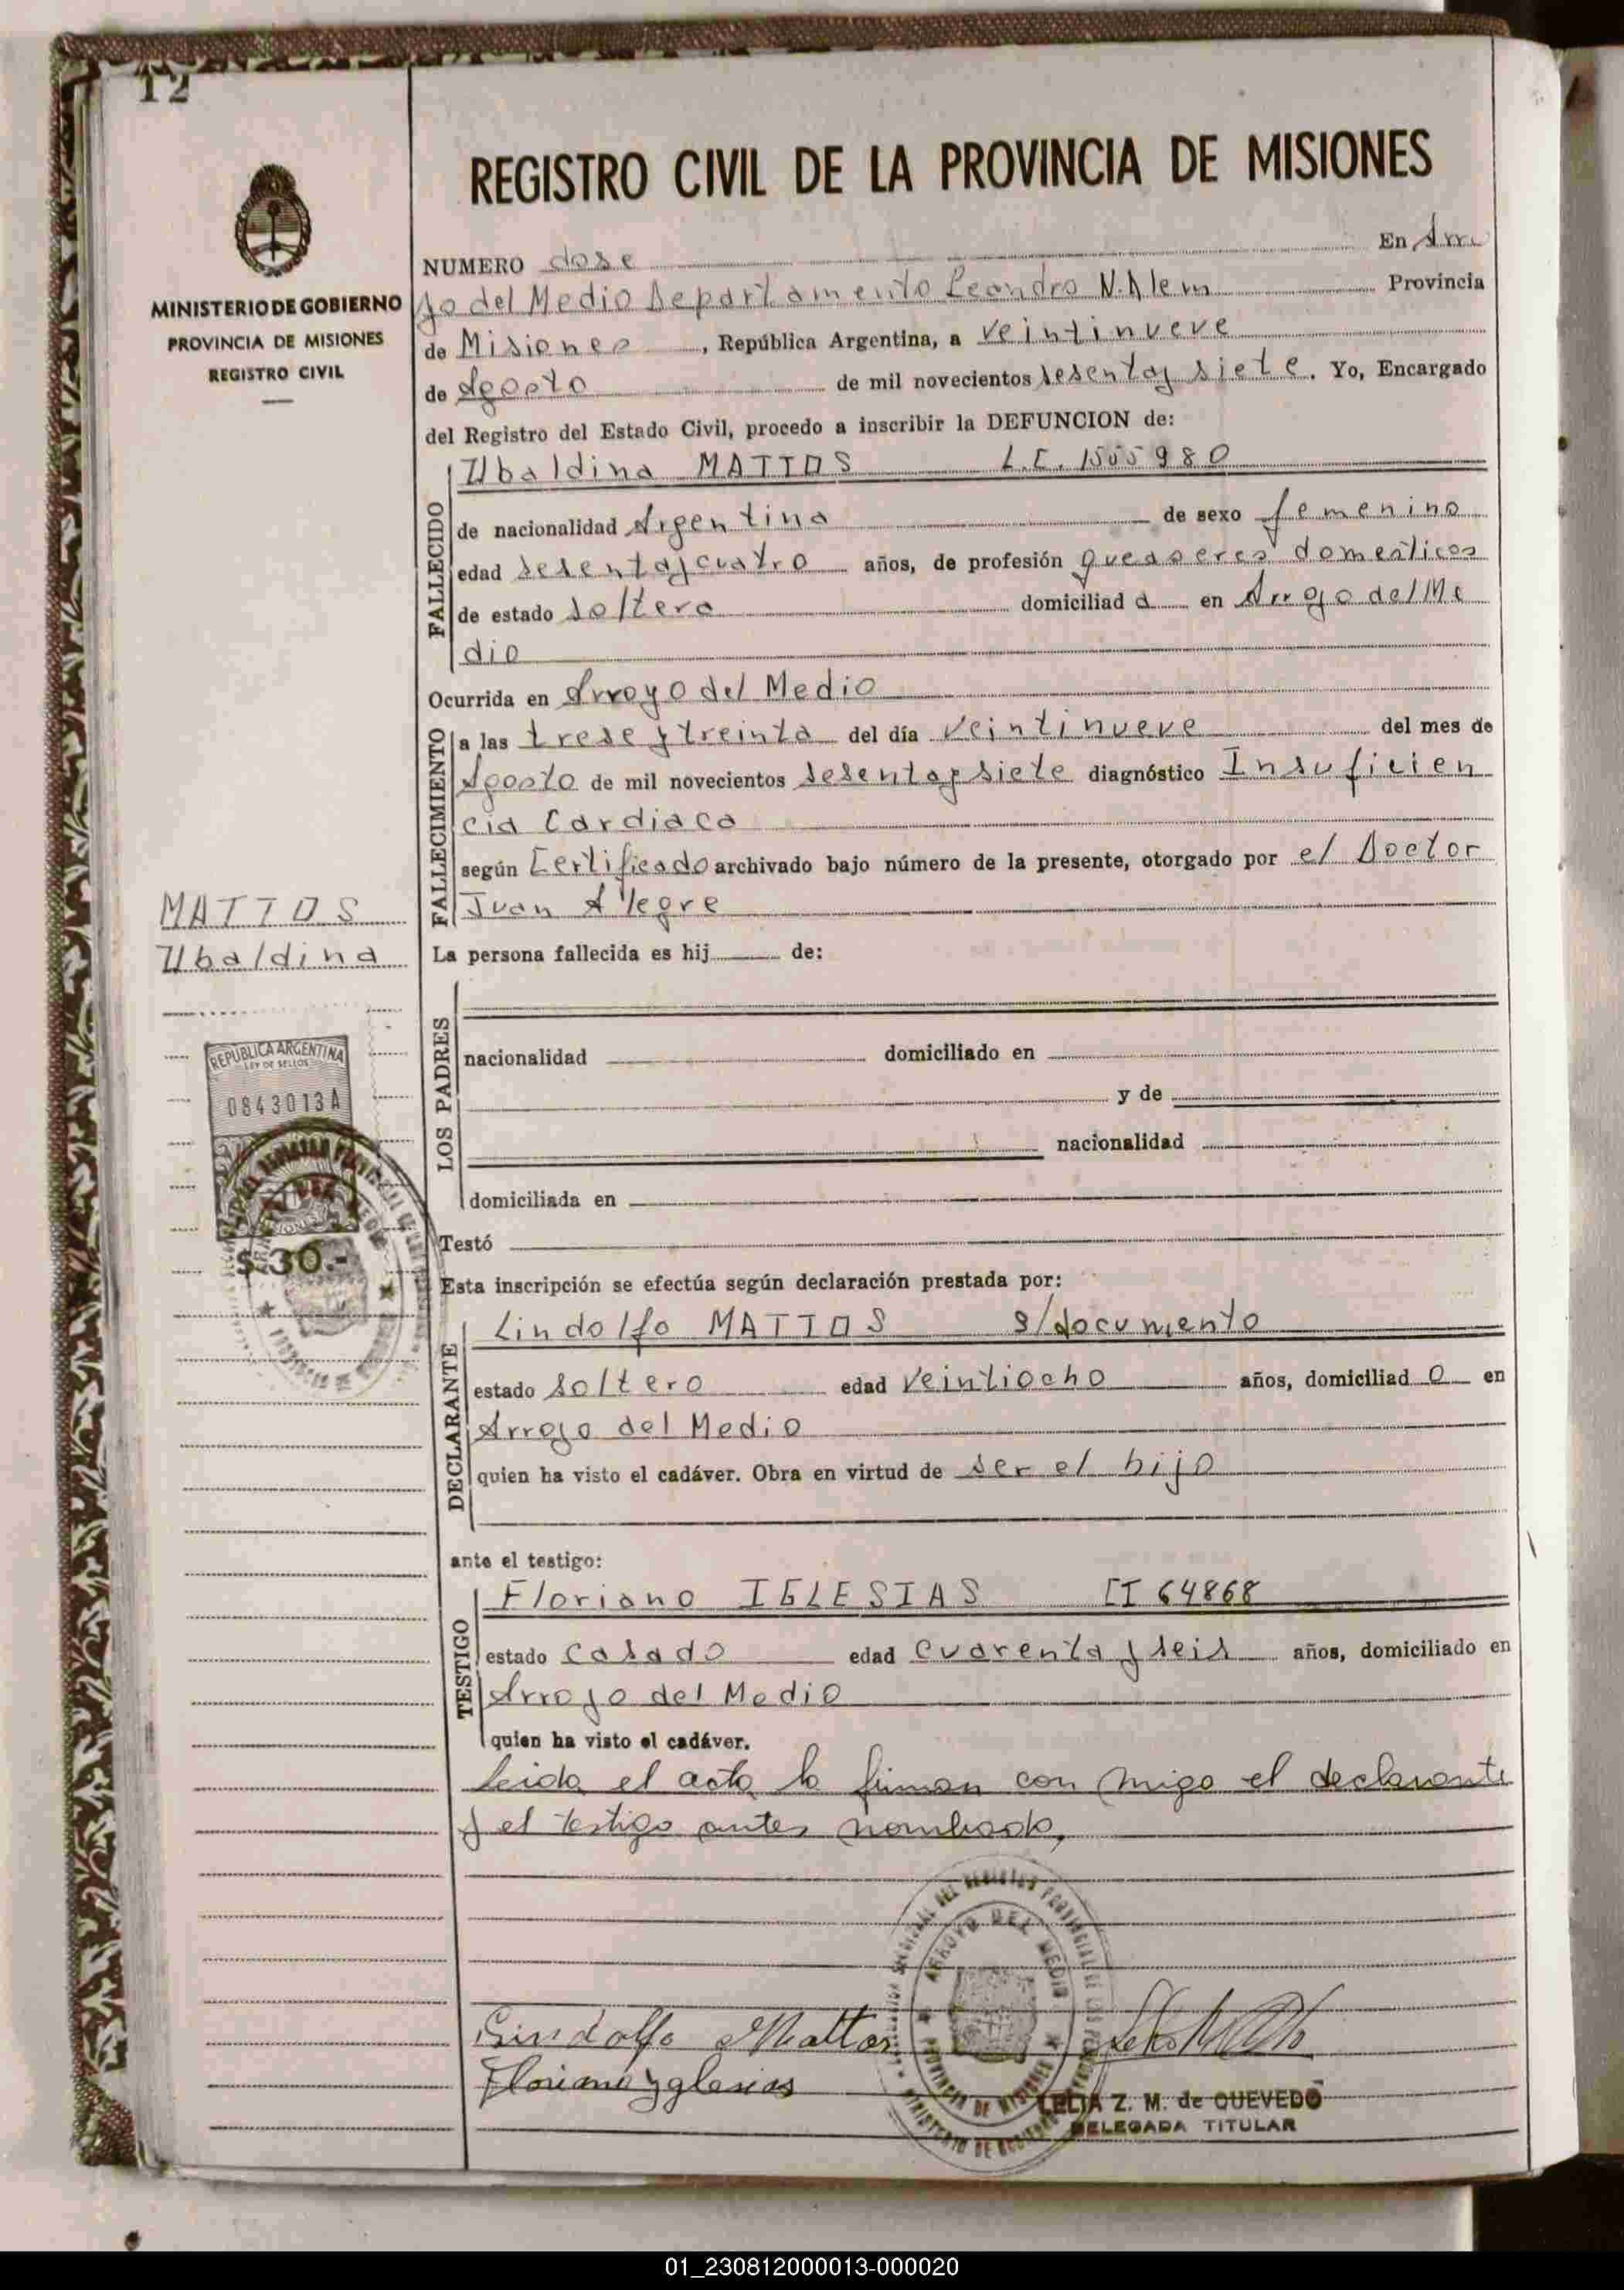 12
REGISTRO CIVIL DE LA PROVINCIA DE MISIONES
MINISTERIO DE GOBIERNO
PROVINCIA DE MISIONES
REGISTRO CIVIL
NUMERO dose En Arro
yo del Medio Departamento Leandro N. Alem Provincia
de Misiones, República Argentina, a veintinueve
de Agosto de mil novecientos sesentay siete. Yo, Encargado
del Registro del Estado Civil, procedo a inscribir la DEFUNCION de:
FALLECIDO
Ubaldina MATTOS L.C. 1505980
de nacionalidad Argentina de sexo femenino
edad sesentaycuatro años, de profesión queaseres domesticos
de estado soltera domiciliad a en Arroyo del Me
dio
Ocurrida en Arroyo del Medio
FALLECIMIENTO
a las trese y treinta del día veintinueve del mes de
Agosto de mil novecientos sesentaysiete diagnóstico Insuficien
cia Cardiaca
según Certificado archivado bajo número de la presente, otorgado por el Doctor
Juan Alegre
MATTOS
Ubaldina
La persona fallecida es hij de:
LOS PADRES
nacionalidad domiciliado en
y de
nacionalidad
domiciliada en
REPUBLICA ARGENTINA
LEY DE SELLOS
0843013A
$ 30.-
Testó
Esta inscripción se efectúa según declaración prestada por:
DECLARANTE
Lindolfo MATTOS s/documento
estado soltero edad veintiocho años, domiciliad o en
Arroyo del Medio
quien ha visto el cadáver. Obra en virtud de ser el hijo
ante el testigo:
TESTIGO
Floriano IGLESIAS CI 64868
estado casado edad cuarenta y seis años, domiciliado en
Arroyo del Medio
quien ha visto el cadáver.
Leida el acta la firman con migo el declarante
y el testigo antes nombrado,
ARROYO DEL MEDIO
PROVINCIA DE MISIONES
Lindolfo Mattos
Floriano yglesias
LELIA Z. M. de QUEVEDO
DELEGADA TITULAR
01_230812000013-000020